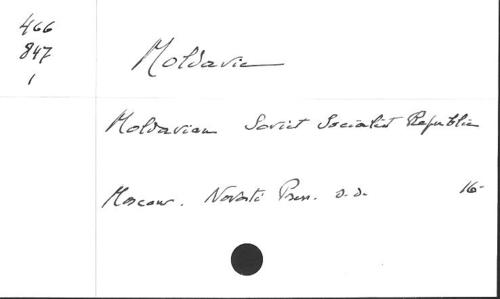 466
847
1
Moldavia
Moldavian Soviet Socialist Republic
Moscow. Novosti Press. s.d. 16-